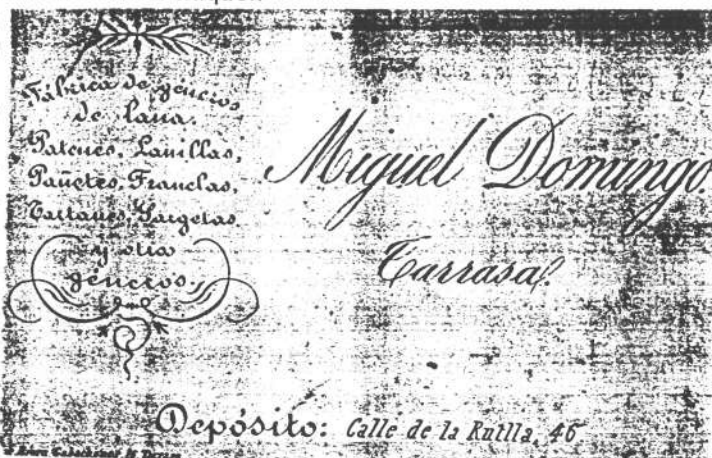 Fábrica de géneros
de lana.
Patenes, Lanillas,
Pañetes, Franelas,
Tartanes, Sargetas
y otros
géneros.
Miguel Domingo
Tarrasa.
Depósito: Calle de la Rutlla, 46